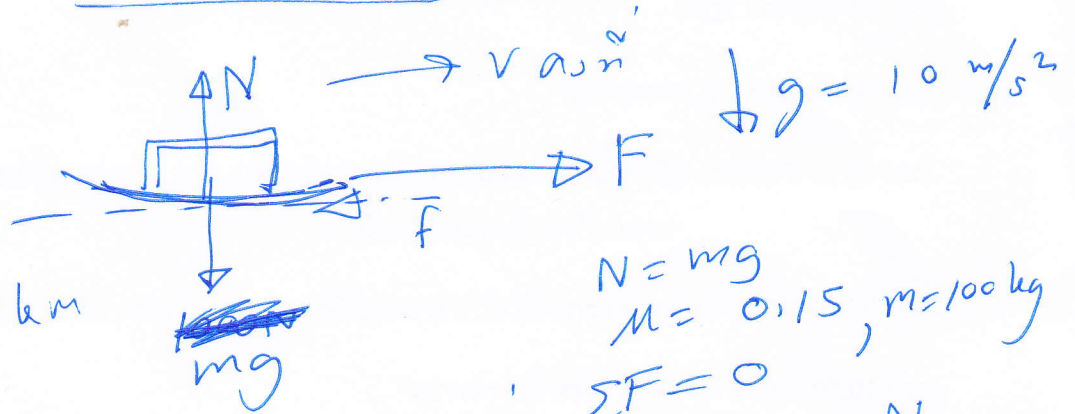 N
V คงที่
g = 10 m/s²
F
f
km
mg
N = mg
μ = 0.15, m=100kg
ΣF = 0
N